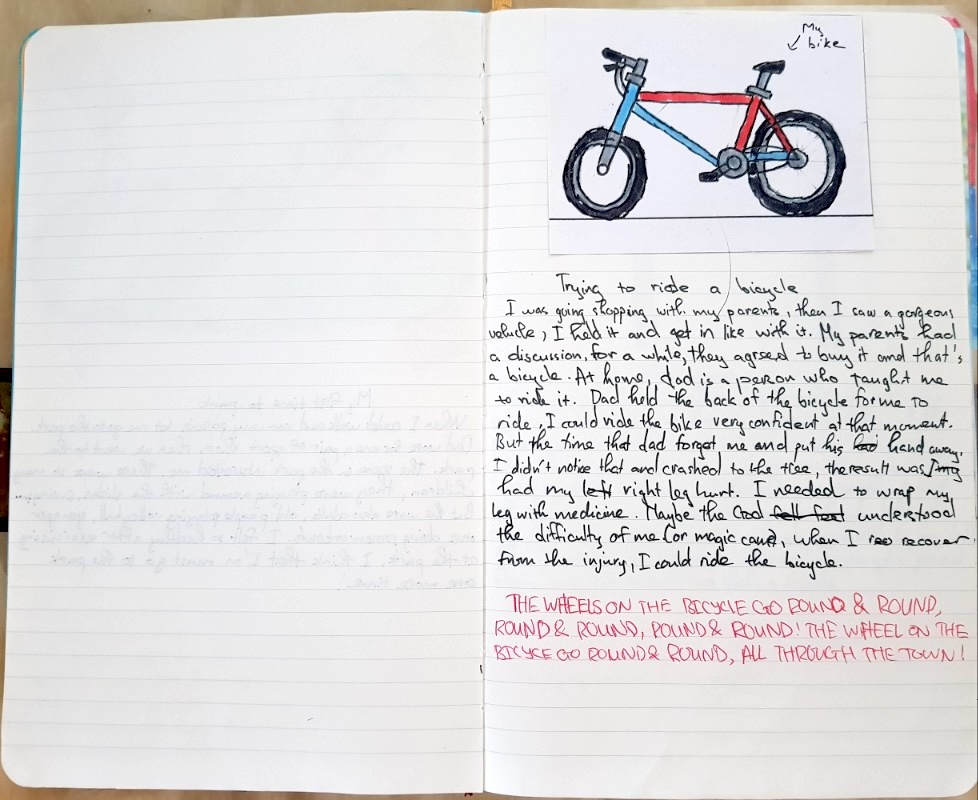 My
bike
Trying to ride a bicycle
I was going shopping with my parents, then I saw a gorgeous
vehicle, I held it and get in like with it. My parents had
a discussion, for a while, they agreed to buy it and that's
a bicycle. At home, dad is a person who taught me
to ride it. Dad held the back of the bicycle for me to
ride, I could ride the bike very confident at that moment.
But the time that dad forgot me and put his hand away.
I didn't notice that and crashed to the tree, the result was
had my left right leg hurt. I needed to wrap my
leg with medicine. Maybe the God fell feet understood
the difficulty of me (or magic, when I recover
from the injury, I could ride the bicycle.
THE WHEELS ON THE BICYCLE GO ROUND & ROUND,
ROUND & ROUND, ROUND & ROUND! THE WHEEL ON THE
BICYCE GO ROUND & ROUND, ALL THROUGH THE TOWN!